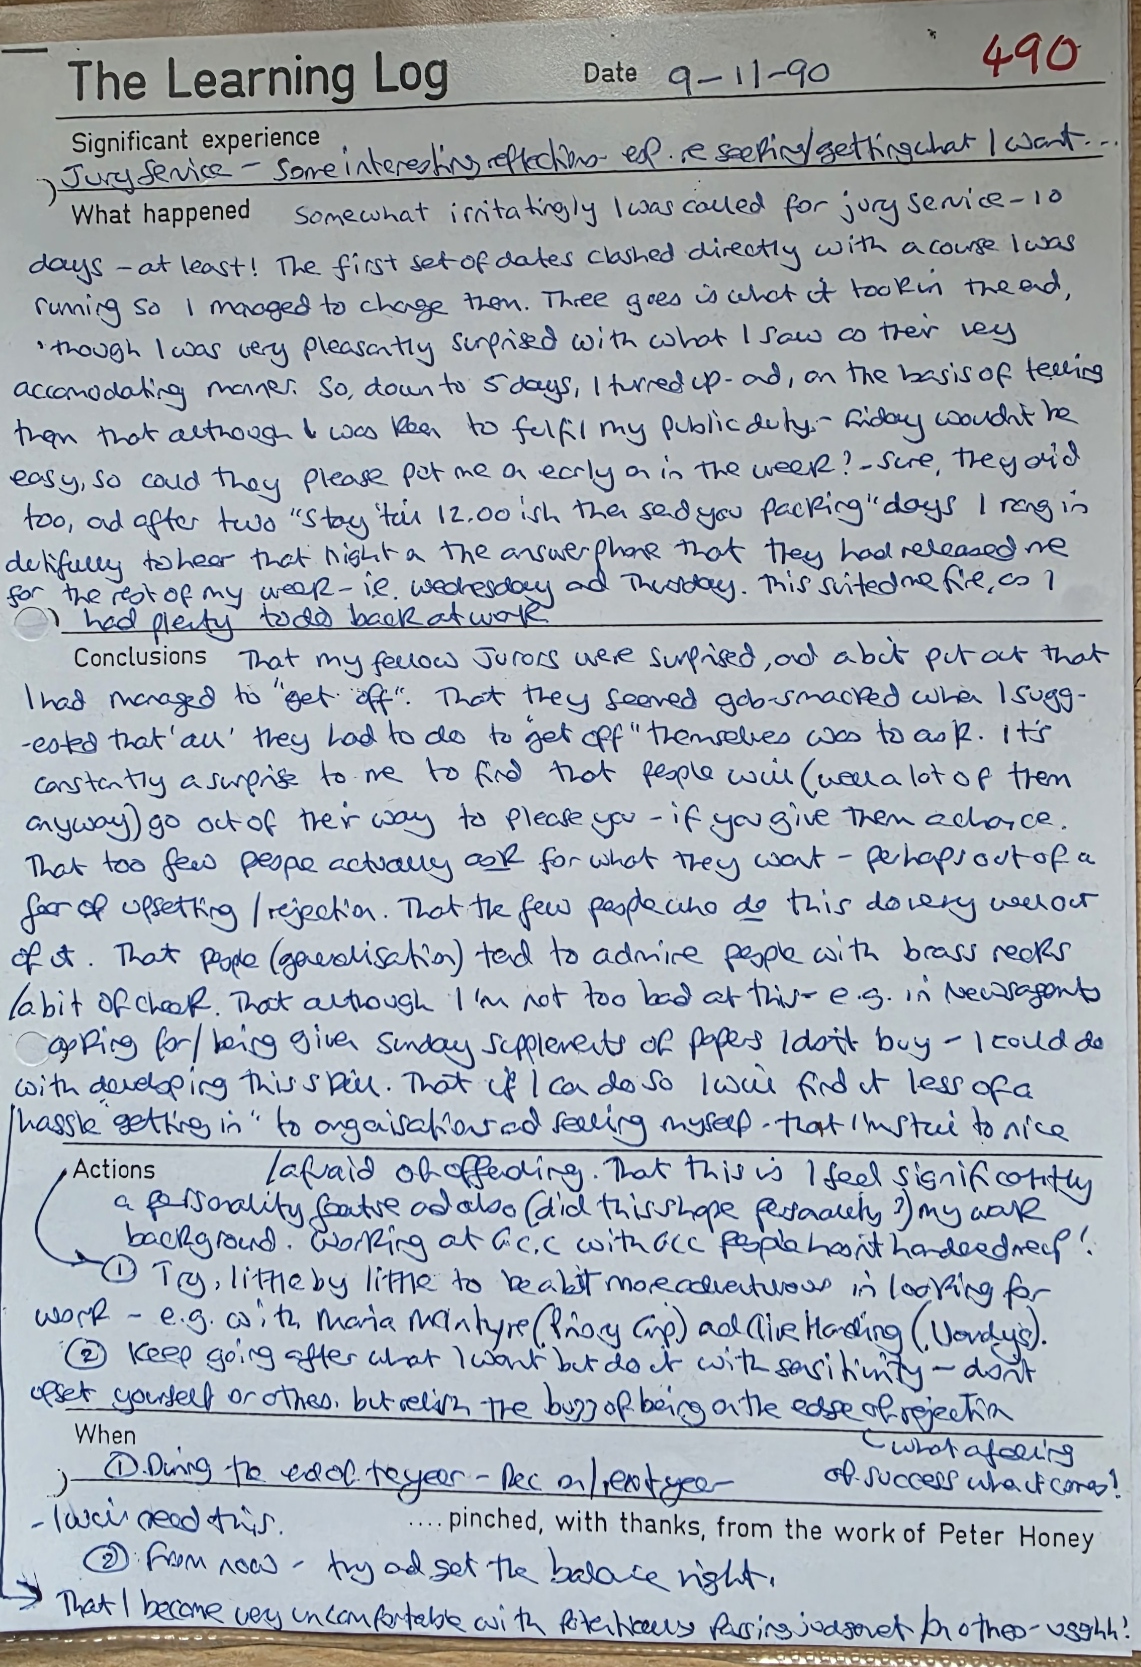 490
The Learning Log Date 9-11-90
Significant experience
Jury Service - Some interesting reflections esp. re seeking/getting what I want...
What happened Somewhat irritatingly I was called for jury service - 10
days - at least! The first set of dates clashed directly with a course I was
running so I managed to change them. Three goes is what it took in the end,
'though I was very pleasantly surprised with what I saw as their very
accomodating manner. So, down to 5 days, I turned up - and, on the basis of telling
them that although I was keen to fulfil my public duty - Friday wouldn't be
easy, so could they please put me on early on in the week? - Sure, they did
too, and after two "stay 'till 12.00 ish then send you packing" days I rang in
delifully to hear that night on the answerphone that they had released me
for the rest of my week - i.e. Wednesday and Thursday. This suited me fine, as I
had plenty to do back at work
Conclusions That my fellow Jurors were surprised, and a bit put out that
I had managed to "get off". That they seemed gob-smacked when I sugg-
-ested that 'all' they had to do to "get off" themselves was to ask. It's
constantly a surprise to me to find that people will (well a lot of them
anyway) go out of their way to please you - if you give them a choice.
That too few people actually ask for what they want - perhaps out of a
fear of upsetting/rejection. That the few people who do this do very well out
of it. That people (generalisation) tend to admire people with brass necks
/a bit of cheek. That although I'm not too bad at this - e.g. in Newsagents
asking for/being given Sunday supplements of papers I don't buy - I could do
with developing this skill. That if I can do so I will find it less of a
hassle "getting in" to organisations and selling myself. That I'm still to nice
Actions /afraid of offending. That this is I feel significantly
a personality feature and also (did this shape personality?) my work
background. Working at G.C.C with GCC people hasn't handed me !
① Try, little by little to be a bit more adventurous in looking for
work - e.g. with Maria McIntyre (Priory Grp) and Clive Harding (Wendy's).
② Keep going after what I want but do it with sensitivity - don't
upset yourself or others, but relish the buzz of being on the edge of rejection
When - what a feeling
① During the end of the year - Dec on/next year of success when it comes!
- I will need this. .... pinched, with thanks, from the work of Peter Honey
② From now - try and get the balance right.
That I become very uncomfortable with passing judgement on others - ugghh!